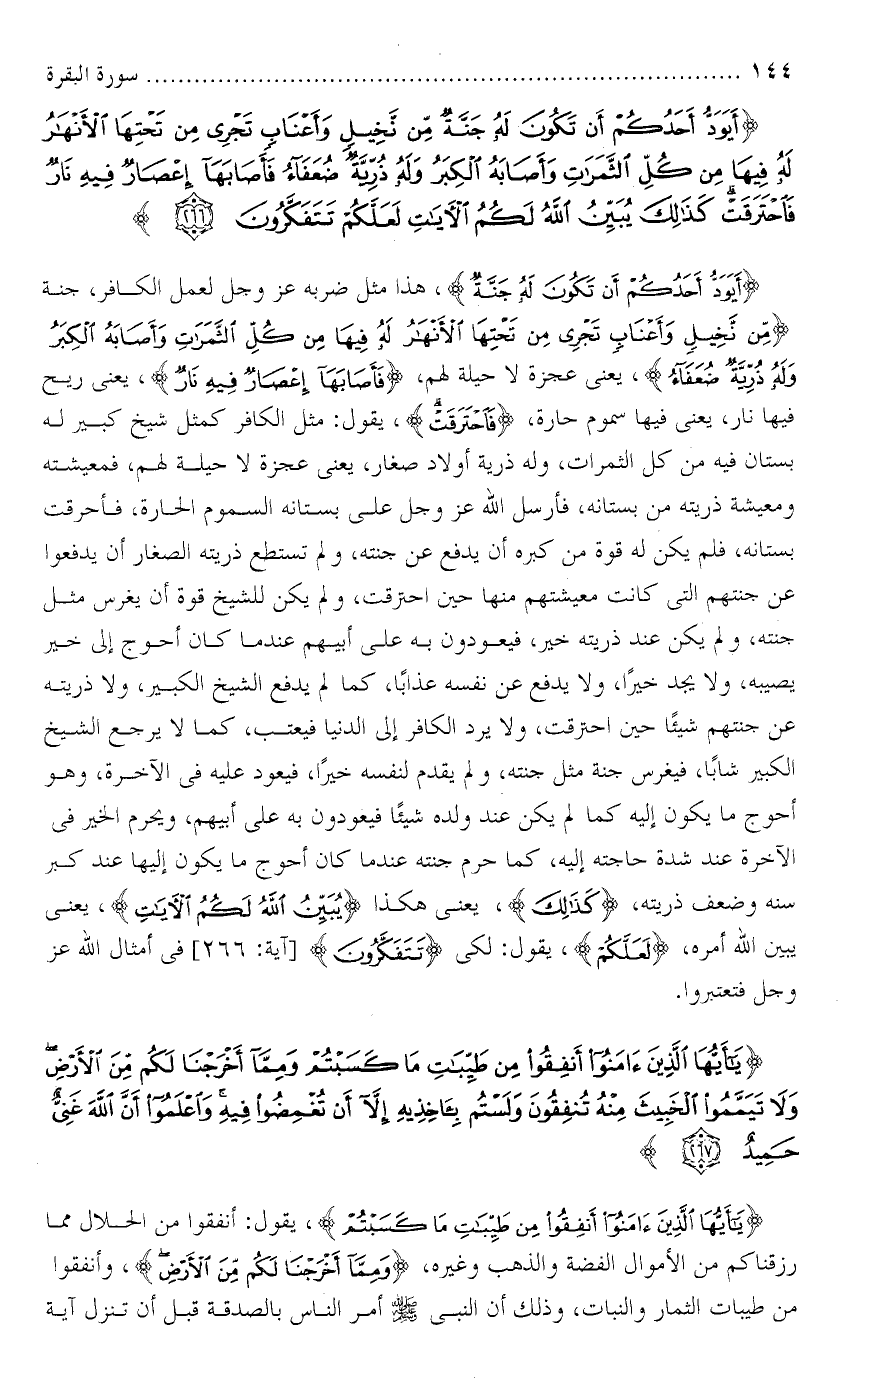 ١٤٤ ........................................................................... سورة البقرة
﴿أَيَوَدُّ أَحَدُكُمْ أَن تَكُونَ لَهُ جَنَّةٌ مِّن نَّخِيلٍ وَأَعْنَابٍ تَجْرِى مِن تَحْتِهَا الْأَنْهَارُ
لَهُ فِيهَا مِن كُلِّ الثَّمَرَاتِ وَأَصَابَهُ الْكِبَرُ وَلَهُ ذُرِّيَّةٌ ضُعَفَاءُ فَأَصَابَهَا إِعْصَارٌ فِيهِ نَارٌ
فَاحْتَرَقَتْ كَذَلِكَ يُبَيِّنُ اللَّهُ لَكُمُ الْآيَاتِ لَعَلَّكُمْ تَتَفَكَّرُونَ ٢٦٦ ﴾
﴿أَيَوَدُّ أَحَدُكُمْ أَن تَكُونَ لَهُ جَنَّةٌ﴾، هذا مثل ضربه عز وجل لعمل الكافر، جنة
﴿مِّن نَّخِيلٍ وَأَعْنَابٍ تَجْرِى مِن تَحْتِهَا الْأَنْهَارُ لَهُ فِيهَا مِن كُلِّ الثَّمَرَاتِ وَأَصَابَهُ الْكِبَرُ
وَلَهُ ذُرِّيَّةٌ ضُعَفَاءُ﴾، يعنى عجزة لا حيلة لهم، ﴿فَأَصَابَهَا إِعْصَارٌ فِيهِ نَارٌ﴾، يعنى ريح
فيها نار، يعنى فيها سموم حارة، ﴿فَاحْتَرَقَتْ﴾، يقول: مثل الكافر كمثل شيخ كبير له
بستان فيه من كل الثمرات، وله ذرية أولاد صغار، يعنى عجزة لا حيلة لهم، فمعيشته
ومعيشة ذريته من بستانه، فأرسل الله عز وجل على بستانه السموم الحارة، فأحرقت
بستانه، فلم يكن له قوة من كبره أن يدفع عن جنته، ولم تستطع ذريته الصغار أن يدفعوا
عن جنتهم التى كانت معيشتهم منها حين احترقت، ولم يكن للشيخ قوة أن يغرس مثل
جنته، ولم يكن عند ذريته خير، فيعودون به على أبيهم عندما كان أحوج إلى خير
يصيبه، ولا يجد خيرًا، ولا يدفع عن نفسه عذابًا، كما لم يدفع الشيخ الكبير، ولا ذريته
عن جنتهم شيئًا حين احترقت، ولا يرد الكافر إلى الدنيا فيعتب، كما لا يرجع الشيخ
الكبير شابًا، فيغرس جنة مثل جنته، ولم يقدم لنفسه خيرًا، فيعود عليه فى الآخرة، وهو
أحوج ما يكون إليه كما لم يكن عند ولده شيئًا فيعودون به على أبيهم، ويحرم الخير فى
الآخرة عند شدة حاجته إليه، كما حرم جنته عندما كان أحوج ما يكون إليها عند كبر
سنه وضعف ذريته، ﴿كَذَلِكَ﴾، يعنى هكذا ﴿يُبَيِّنُ اللَّهُ لَكُمُ الْآيَاتِ﴾، يعنى
يبين الله أمره، ﴿لَعَلَّكُمْ﴾، يقول: لكى ﴿تَتَفَكَّرُونَ﴾ [آية: ٢٦٦] فى أمثال الله عز
وجل فتعتبروا.
﴿يَا أَيُّهَا الَّذِينَ ءَامَنُوا أَنفِقُوا مِن طَيِّبَاتِ مَا كَسَبْتُمْ وَمِمَّا أَخْرَجْنَا لَكُم مِّنَ الْأَرْضِ
وَلَا تَيَمَّمُوا الْخَبِيثَ مِنْهُ تُنفِقُونَ وَلَسْتُم بِآخِذِيهِ إِلَّا أَن تُغْمِضُوا فِيهِ وَاعْلَمُوا أَنَّ اللَّهَ غَنِىٌّ
حَمِيدٌ ٢٦٧ ﴾
﴿يَا أَيُّهَا الَّذِينَ ءَامَنُوا أَنفِقُوا مِن طَيِّبَاتِ مَا كَسَبْتُمْ﴾، يقول: أنفقوا من الحلال مما
رزقناكم من الأموال الفضة والذهب وغيره، ﴿وَمِمَّا أَخْرَجْنَا لَكُم مِّنَ الْأَرْضِ﴾، وأنفقوا
من طيبات الثمار والنبات، وذلك أن النبى ﷺ أمر الناس بالصدقة قبل أن تنزل آية